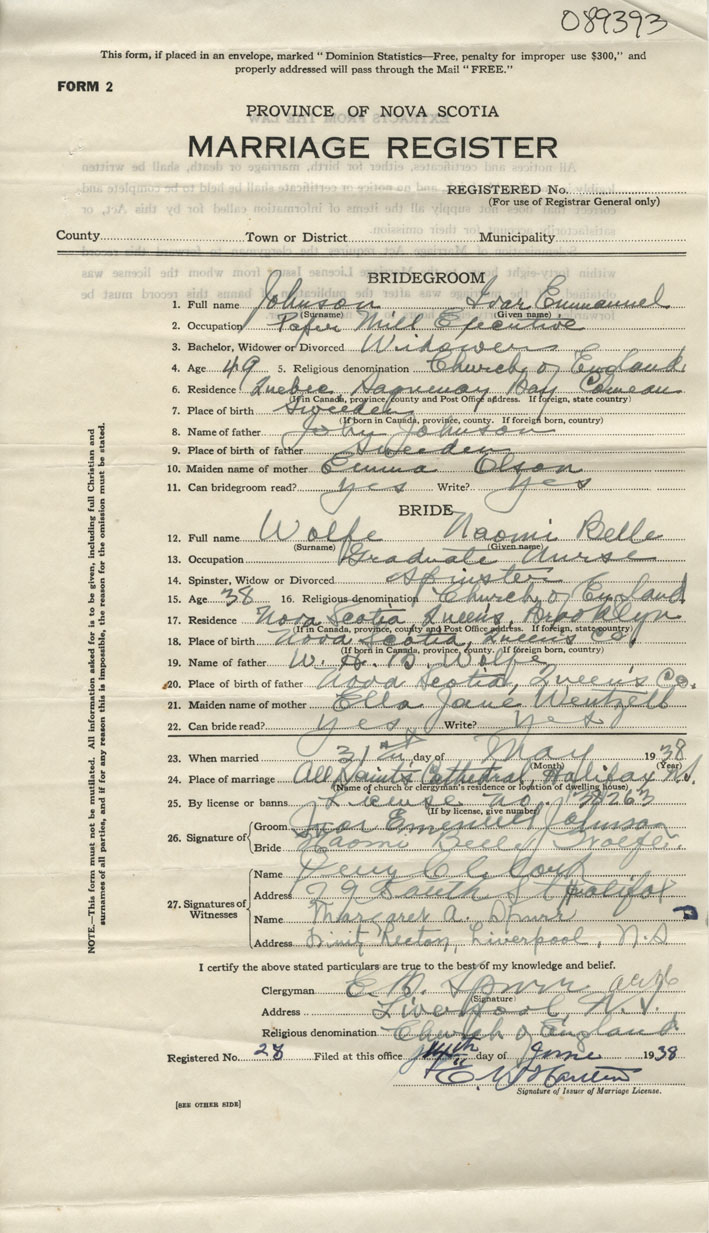 089393
This form, if placed in an envelope, marked "Dominion Statistics—Free, penalty for improper use $300," and
properly addressed will pass through the Mail "FREE."
FORM 2
PROVINCE OF NOVA SCOTIA
MARRIAGE REGISTER
REGISTERED No.
(For use of Registrar General only)
County Town or District Municipality
BRIDEGROOM
1. Full name Johnson Ivar Emmanuel
(Surname) (Given name)
2. Occupation Paper Mill Executive
3. Bachelor, Widower or Divorced Widower
4. Age 49 5. Religious denomination Church of England
6. Residence Quebec Saguenay Bay Comeau
(If in Canada, province, county and Post Office address. If foreign, state country)
7. Place of birth Sweden
(If born in Canada, province, county. If foreign born, country)
8. Name of father John Johnson
9. Place of birth of father Sweden
10. Maiden name of mother Emma Olson
11. Can bridegroom read? yes Write? yes
BRIDE
12. Full name Wolfe Naomi Belle
(Surname) (Given name)
13. Occupation Graduate Nurse
14. Spinster, Widow or Divorced Spinster
15. Age 38 16. Religious denomination Church of England
17. Residence Nova Scotia Queens Brooklyn
(If in Canada, province, county and Post Office address. If foreign, state country)
18. Place of birth Nova Scotia, Queens Co,
(If born in Canada, province, county. If foreign born, country)
19. Name of father W. B. Wolfe
20. Place of birth of father Nova Scotia, Queen's Co.
21. Maiden name of mother Ella Jane Wentzell
22. Can bride read? yes Write? yes
23. When married 31st day of May 1938
(Month) (Year)
24. Place of marriage All Saints Cathedral, Halifax N.S.
(Name of church or clergyman's residence or location of dwelling house)
25. By license or banns License no. 38263
(If by license, give number)
26. Signature of Groom Ivor Emanuel Johnson
Bride Naomi Belle Wolfe.
27. Signatures of Witnesses
Name
Address 79 South St Halifax
Name Margaret A. Spurr
Address Trinity Rectory, Liverpool, N.S
I certify the above stated particulars are true to the best of my knowledge and belief.
Clergyman E. B. Spurr
(Signature)
Address Liverpool, N.S
Religious denomination Church of England
Registered No. 28 Filed at this office 14th day of June 1938
Signature of Issuer of Marriage License.
[SEE OTHER SIDE]
NOTE.—This form must not be mutilated. All information asked for is to be given, including full Christian and
surnames of all parties, and if for any reason this is impossible, the reason for the omission must be stated.